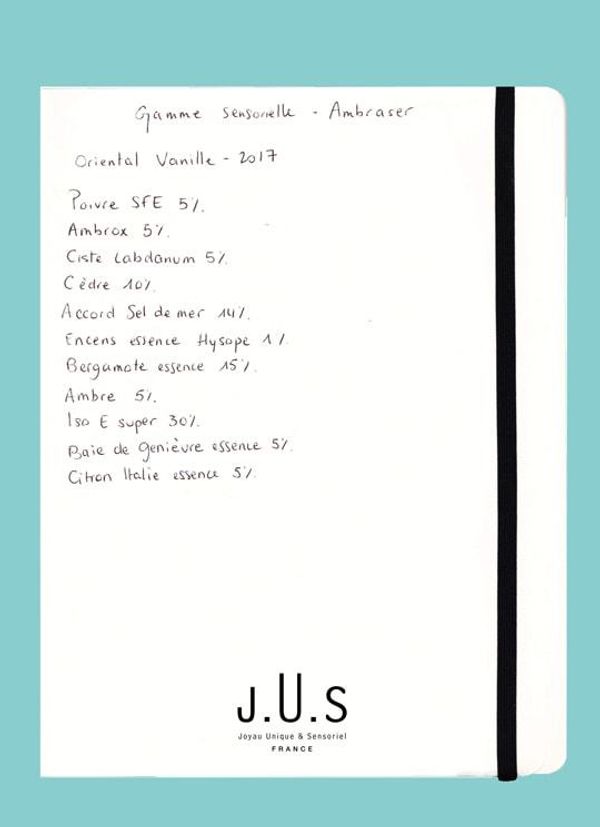 Gamme sensorielle - Ambraser
Oriental Vanille - 2017
Poivre SFE 5%.
Ambrox 5%.
Ciste Labdanum 5%.
Cèdre 10%.
Accord Sel de mer 14%.
Encens essence Hysope 1%.
Bergamote essence 15%.
Ambre 5%.
Iso E super 30%.
Baie de genièvre essence 5%.
Citron Italie essence 5%.
J.U.S
Joyau Unique & Sensoriel
FRANCE